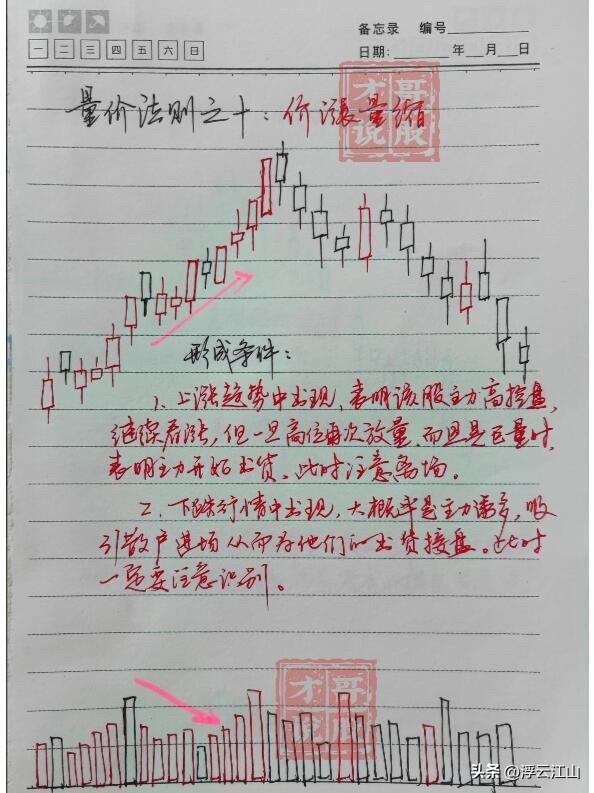 备忘录 编号
一 二 三 四 五 六 日
日期: 年 月 日
量价法则之十：价涨量缩
才哥说股
形成条件：
1、上涨趋势中出现，表明该股主力高控盘，
继续看涨，但一旦高位再次放量，而且是巨量时，
表明主力开始出货。此时注意离场。
2、下跌行情中出现，大概率是主力诱多，吸
引散户进场从而为他们的出货接盘。此时
一定要注意识别。
才哥说股
头条 @浮云江山